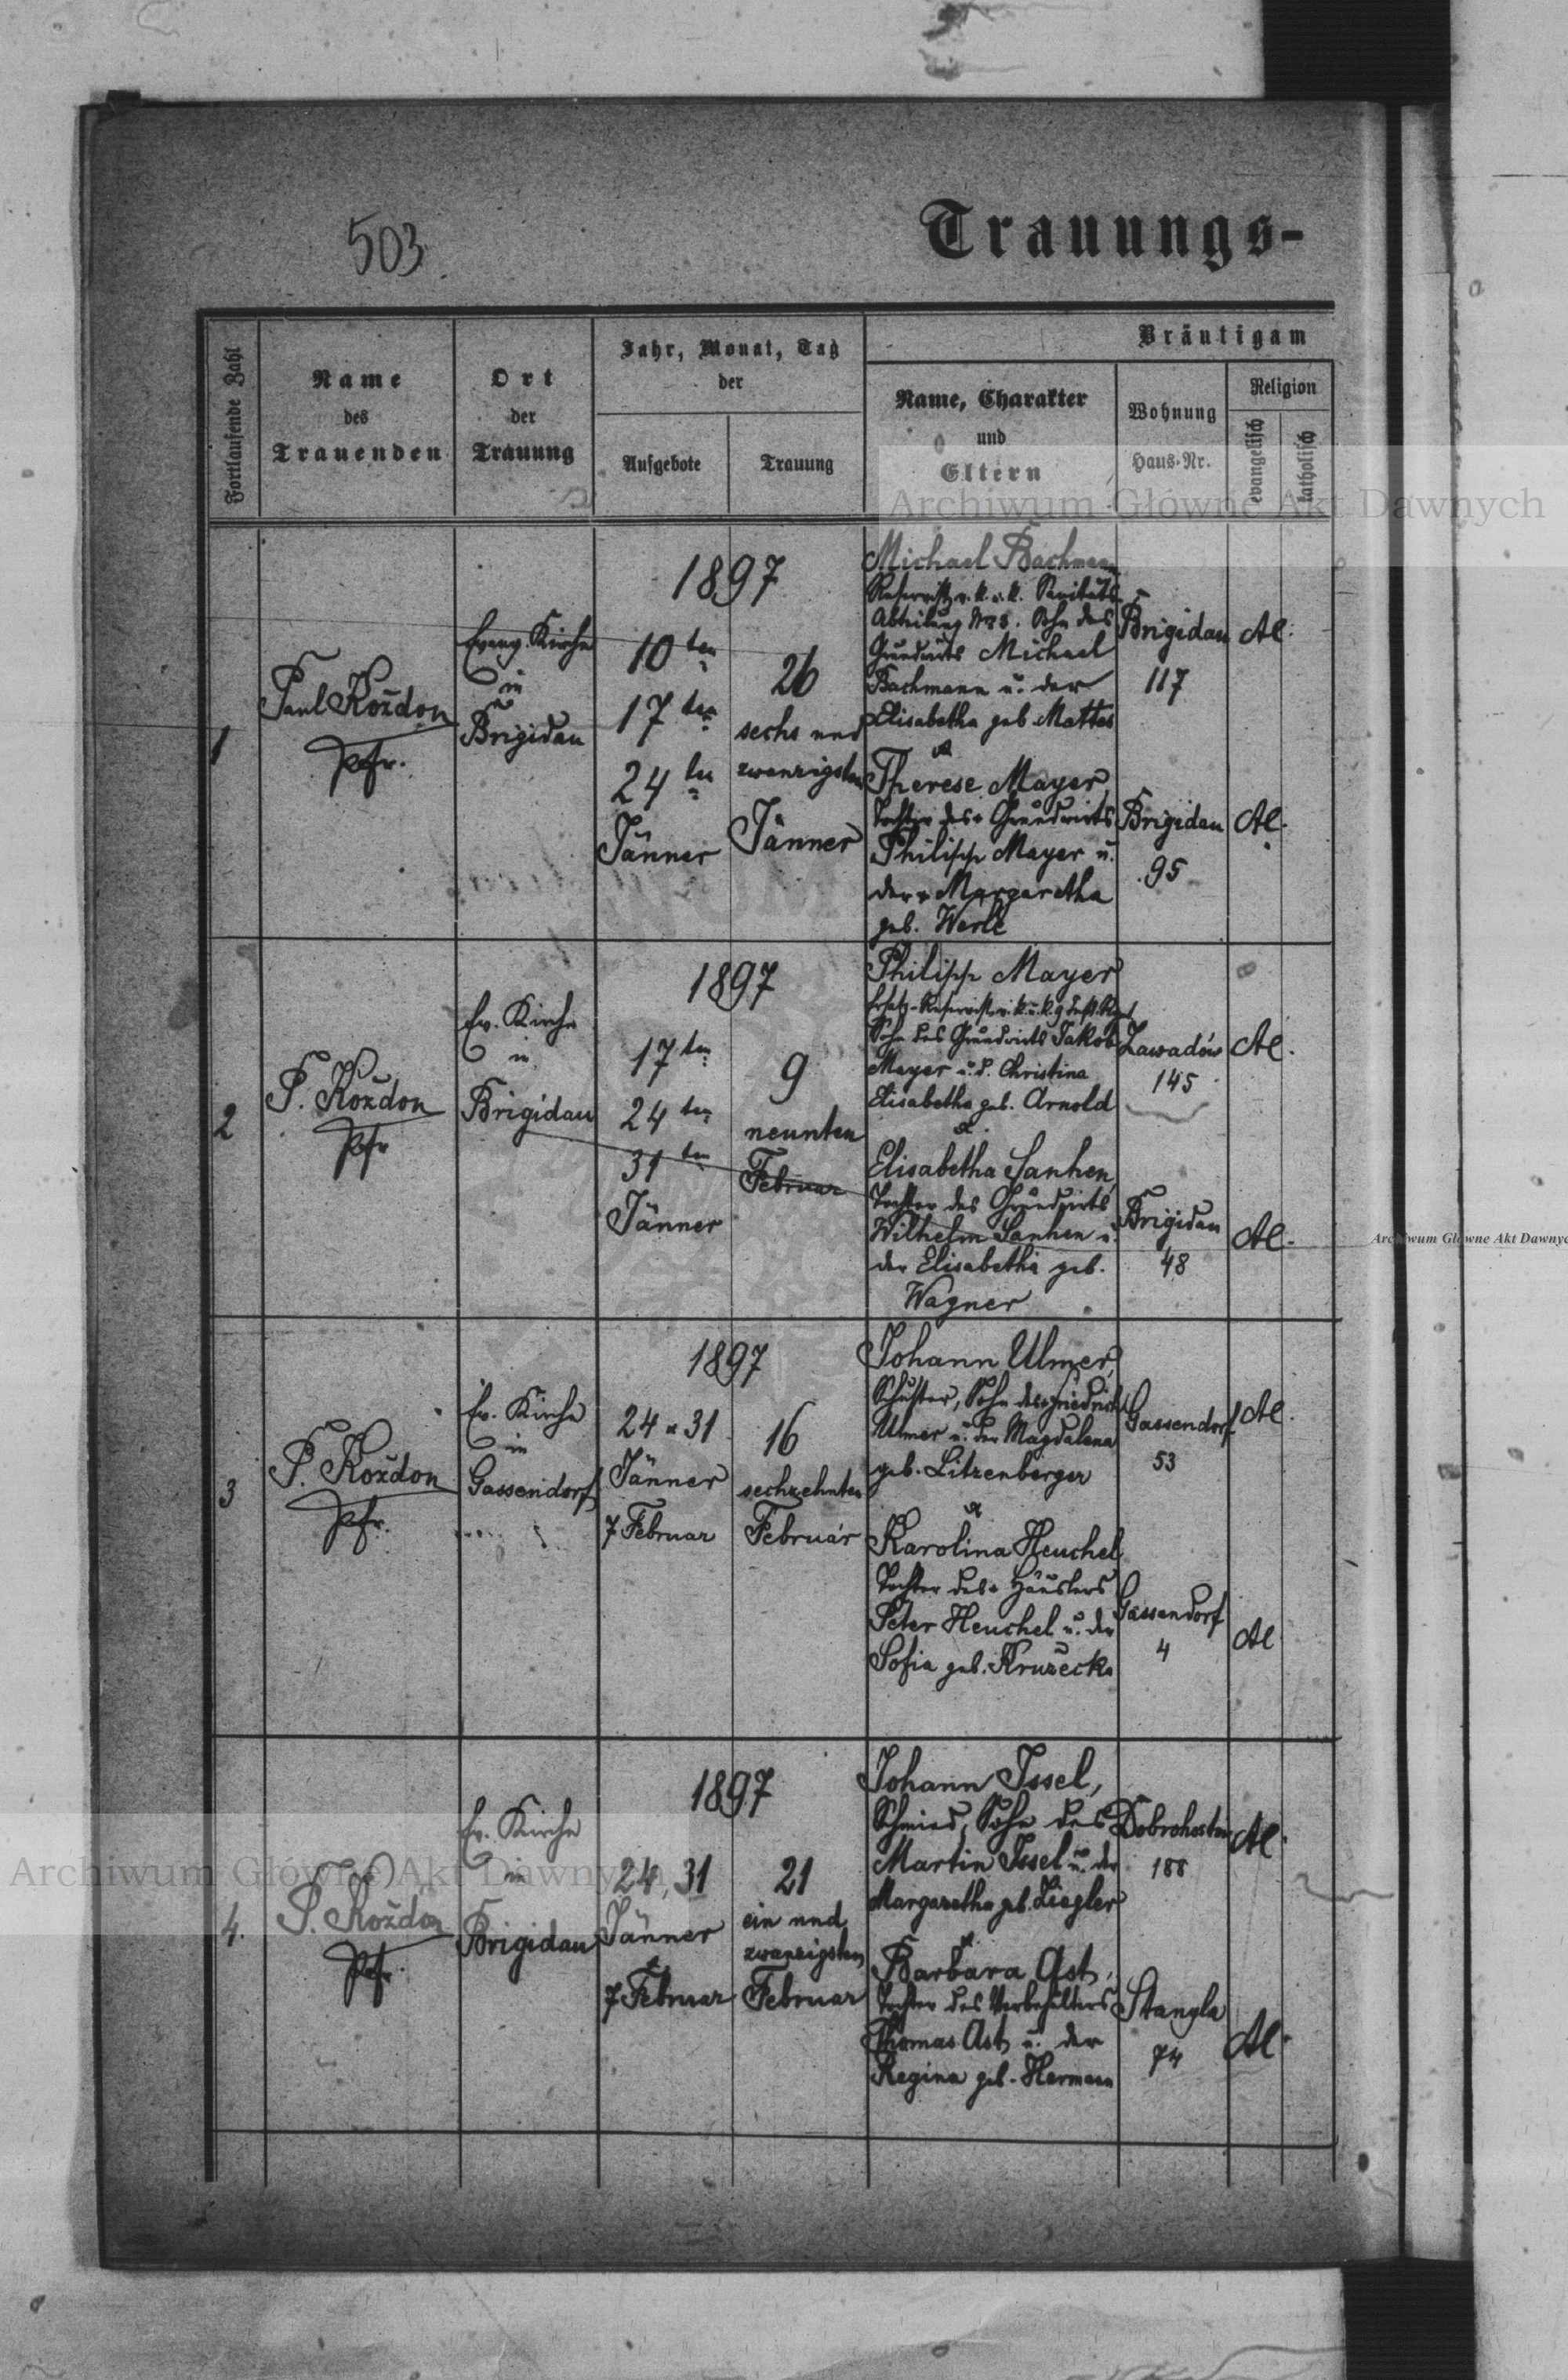 503
Trauungs-
Fortlaufende Zahl
Name
des
Trauenden
Ort
der
Trauung
Jahr, Monat, Tag
der
Aufgebote
Trauung
Bräutigam
Name, Charakter
und
Eltern
Wohnung
Haus-Nr.
Religion
evangelisch
katholisch
Archiwum Główne Akt Dawnych
1
Paul Kożdon
Pfr.
Evang. Kirche
in
Brigidau
1897
10ten
17ten
24ten
Jänner
26
sechs und
zwanzigsten
Jänner
Michael Bachmann
Reservist, k. u. k. Sanitäts
Abtheilung Sohn des
Grundwirts Michael
Bachmann u. der
Elisabetha geb. Mattes
Therese Mayer,
Tochter des Grundwirts
Philipp Mayer u.
der Margaretha
geb. Werle
Brigidau
117
Brigidau
95
Al.
Al.
2
P. Kożdon
Pfr
Ev. Kirche
in
Brigidau
1897
17ten
24ten
31ten
Jänner
9
neunten
Februar
Philipp Mayer
Ersatz-Reservist
Sohn des Grundwirts Jakob
Mayer u. d. Christina
Elisabetha geb. Arnold
Elisabetha Lanhen,
Tochter des Grundwirts
Wilhelm Lanhen u.
der Elisabetha geb.
Wagner
Zawadów
145
Brigidau
48
Al.
Al.
Archiwum Główne Akt Dawnyc
3
P. Kożdon
Pfr.
Ev. Kirche
in
Gassendorf
1897
24 u 31
Jänner
7 Februar
16
sechzehnten
Februar
Johann Ulmer,
Schuster, Sohn des Friedrich
Ulmer u. der Magdalena
geb. Litzenberger
Karolina Heuchel
Tochter des Häuslers
Peter Heuchel u. der
Sofia geb.
Gassendorf
53
Gassendorf
4
Al.
Al
4.
P. Kożdon
Pfr.
Ev. Kirche
in
Brigidau
1897
24, 31
Jänner
7 Februar
21
ein und
zwanzigsten
Februar
Johann Issel,
Schmied, Sohn des
Martin Issel u. der
Margaretha geb. Ziegler
Barbara Ast,
Tochter des
Thomas Ast u. der
Regina geb. Hermann
Dobrohostow
188
Stangla
74
Al.
Al.
Archiwum Główne Akt Dawnych